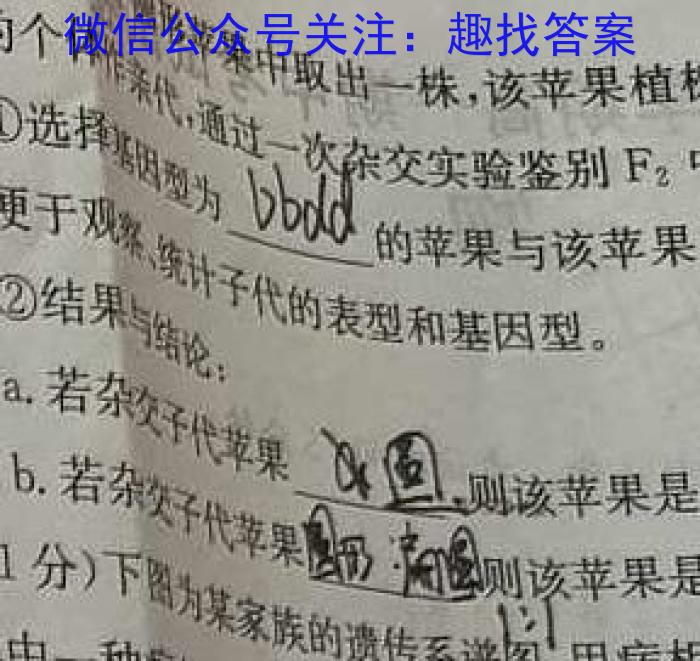 微信公众号关注：趣找答案
中取出一株,该苹果植株
亲代,通过一次杂交实验鉴别 F₂ 中
①选择基因型为 bbdd 的苹果与该苹果
便于观察、统计子代的表型和基因型。
②结果与结论:
a. 若杂交子代苹果 圆 ,则该苹果是
b. 若杂交子代苹果 圆形 则该苹果是
1 分)下图为某家族的遗传系谱图,甲病
1:1
中一种